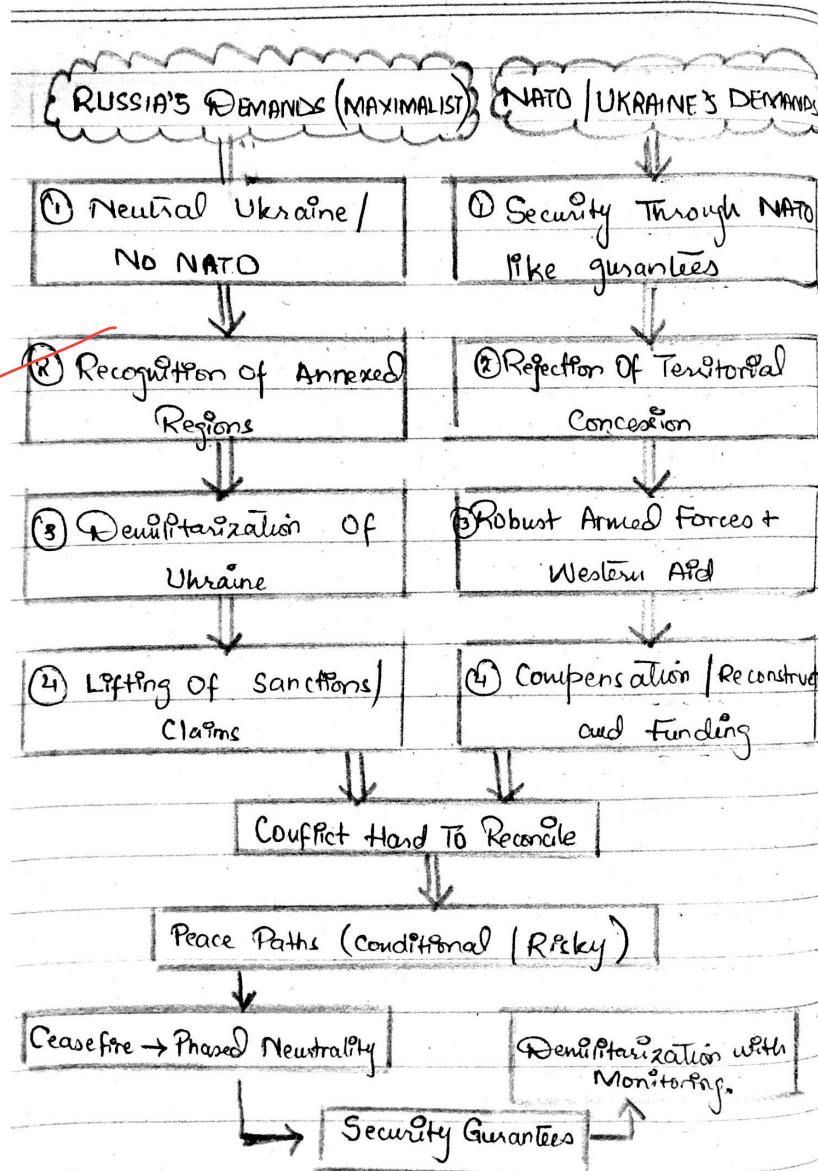 RUSSIA'S DEMANDS (MAXIMALIST)
① Neutral Ukraine /
NO NATO
② Recognition Of Annexed
Regions
③ Demilitarization Of
Ukraine
④ Lifting Of Sanctions/
Claims
NATO / UKRAINE'S DEMANDS
① Security Through NATO
like gurantees
② Rejection Of Territorial
Concession
③ Robust Armed Forces +
Western Aid
④ Compensation / Reconstruct
and Funding
Conflict Hard To Reconcile
Peace Paths (Conditional / Risky)
Ceasefire → Phased Neutrality
Security Gurantees
Demilitarization with
Monitoring.